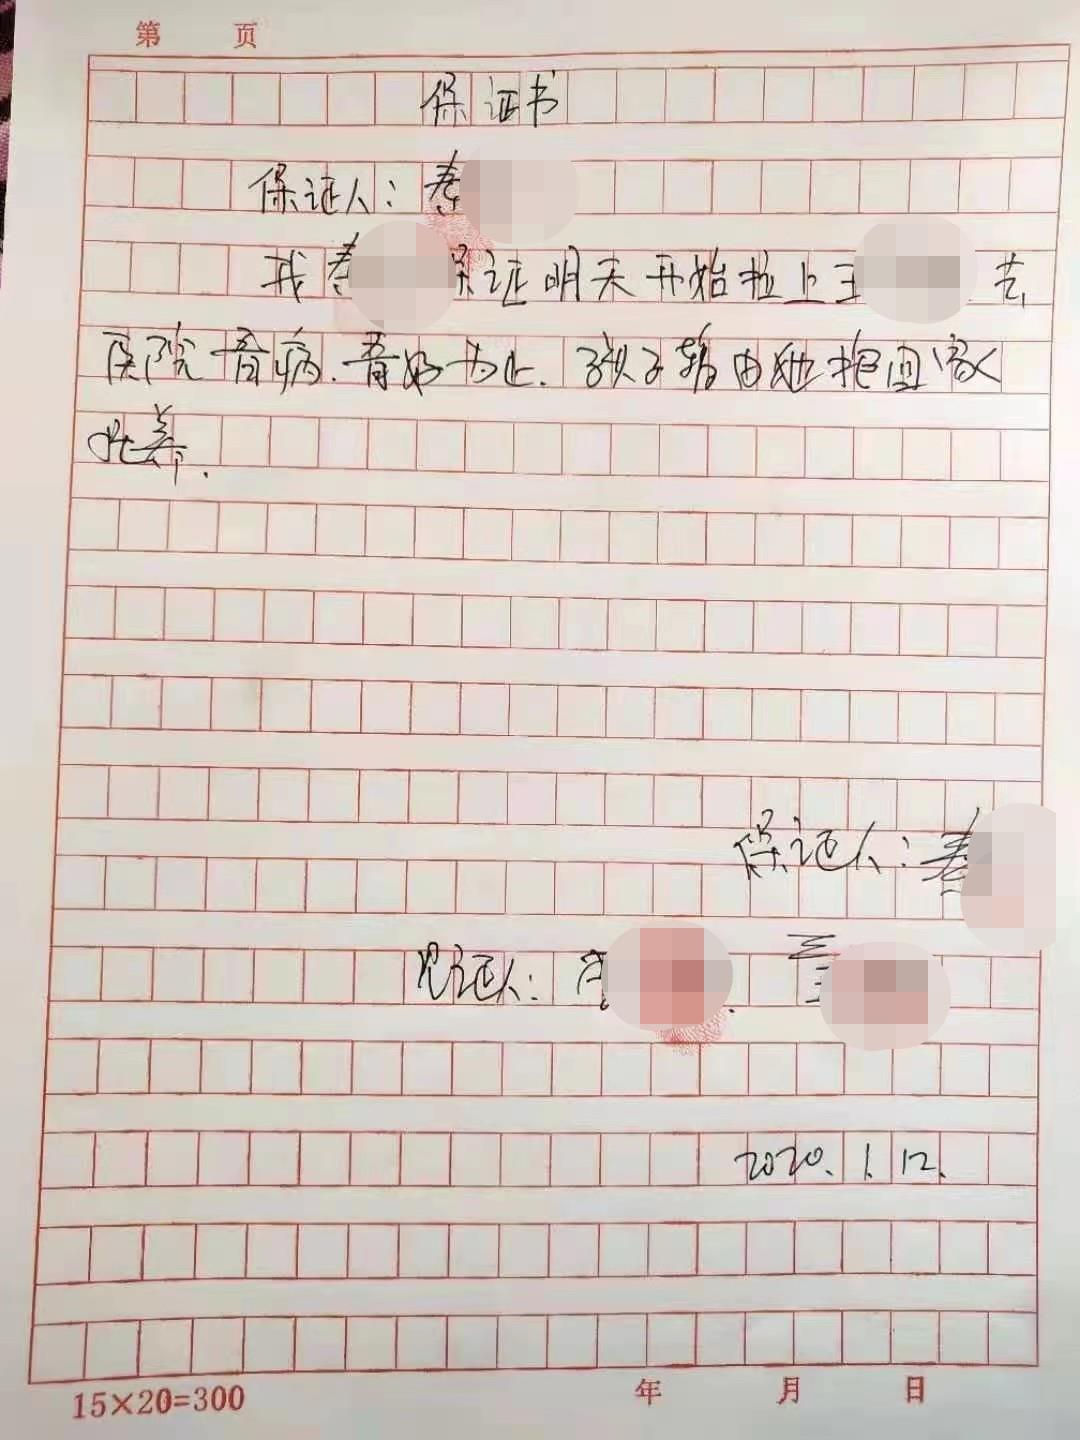 第 页
保证书
保证人：秦
我秦 保证明天开始拉上王 去
医院看病.看好为止. 孩子暂由她抱回家
扶养.
保证人：秦
见证人：
2020.1.12.
15×20=300 年 月 日